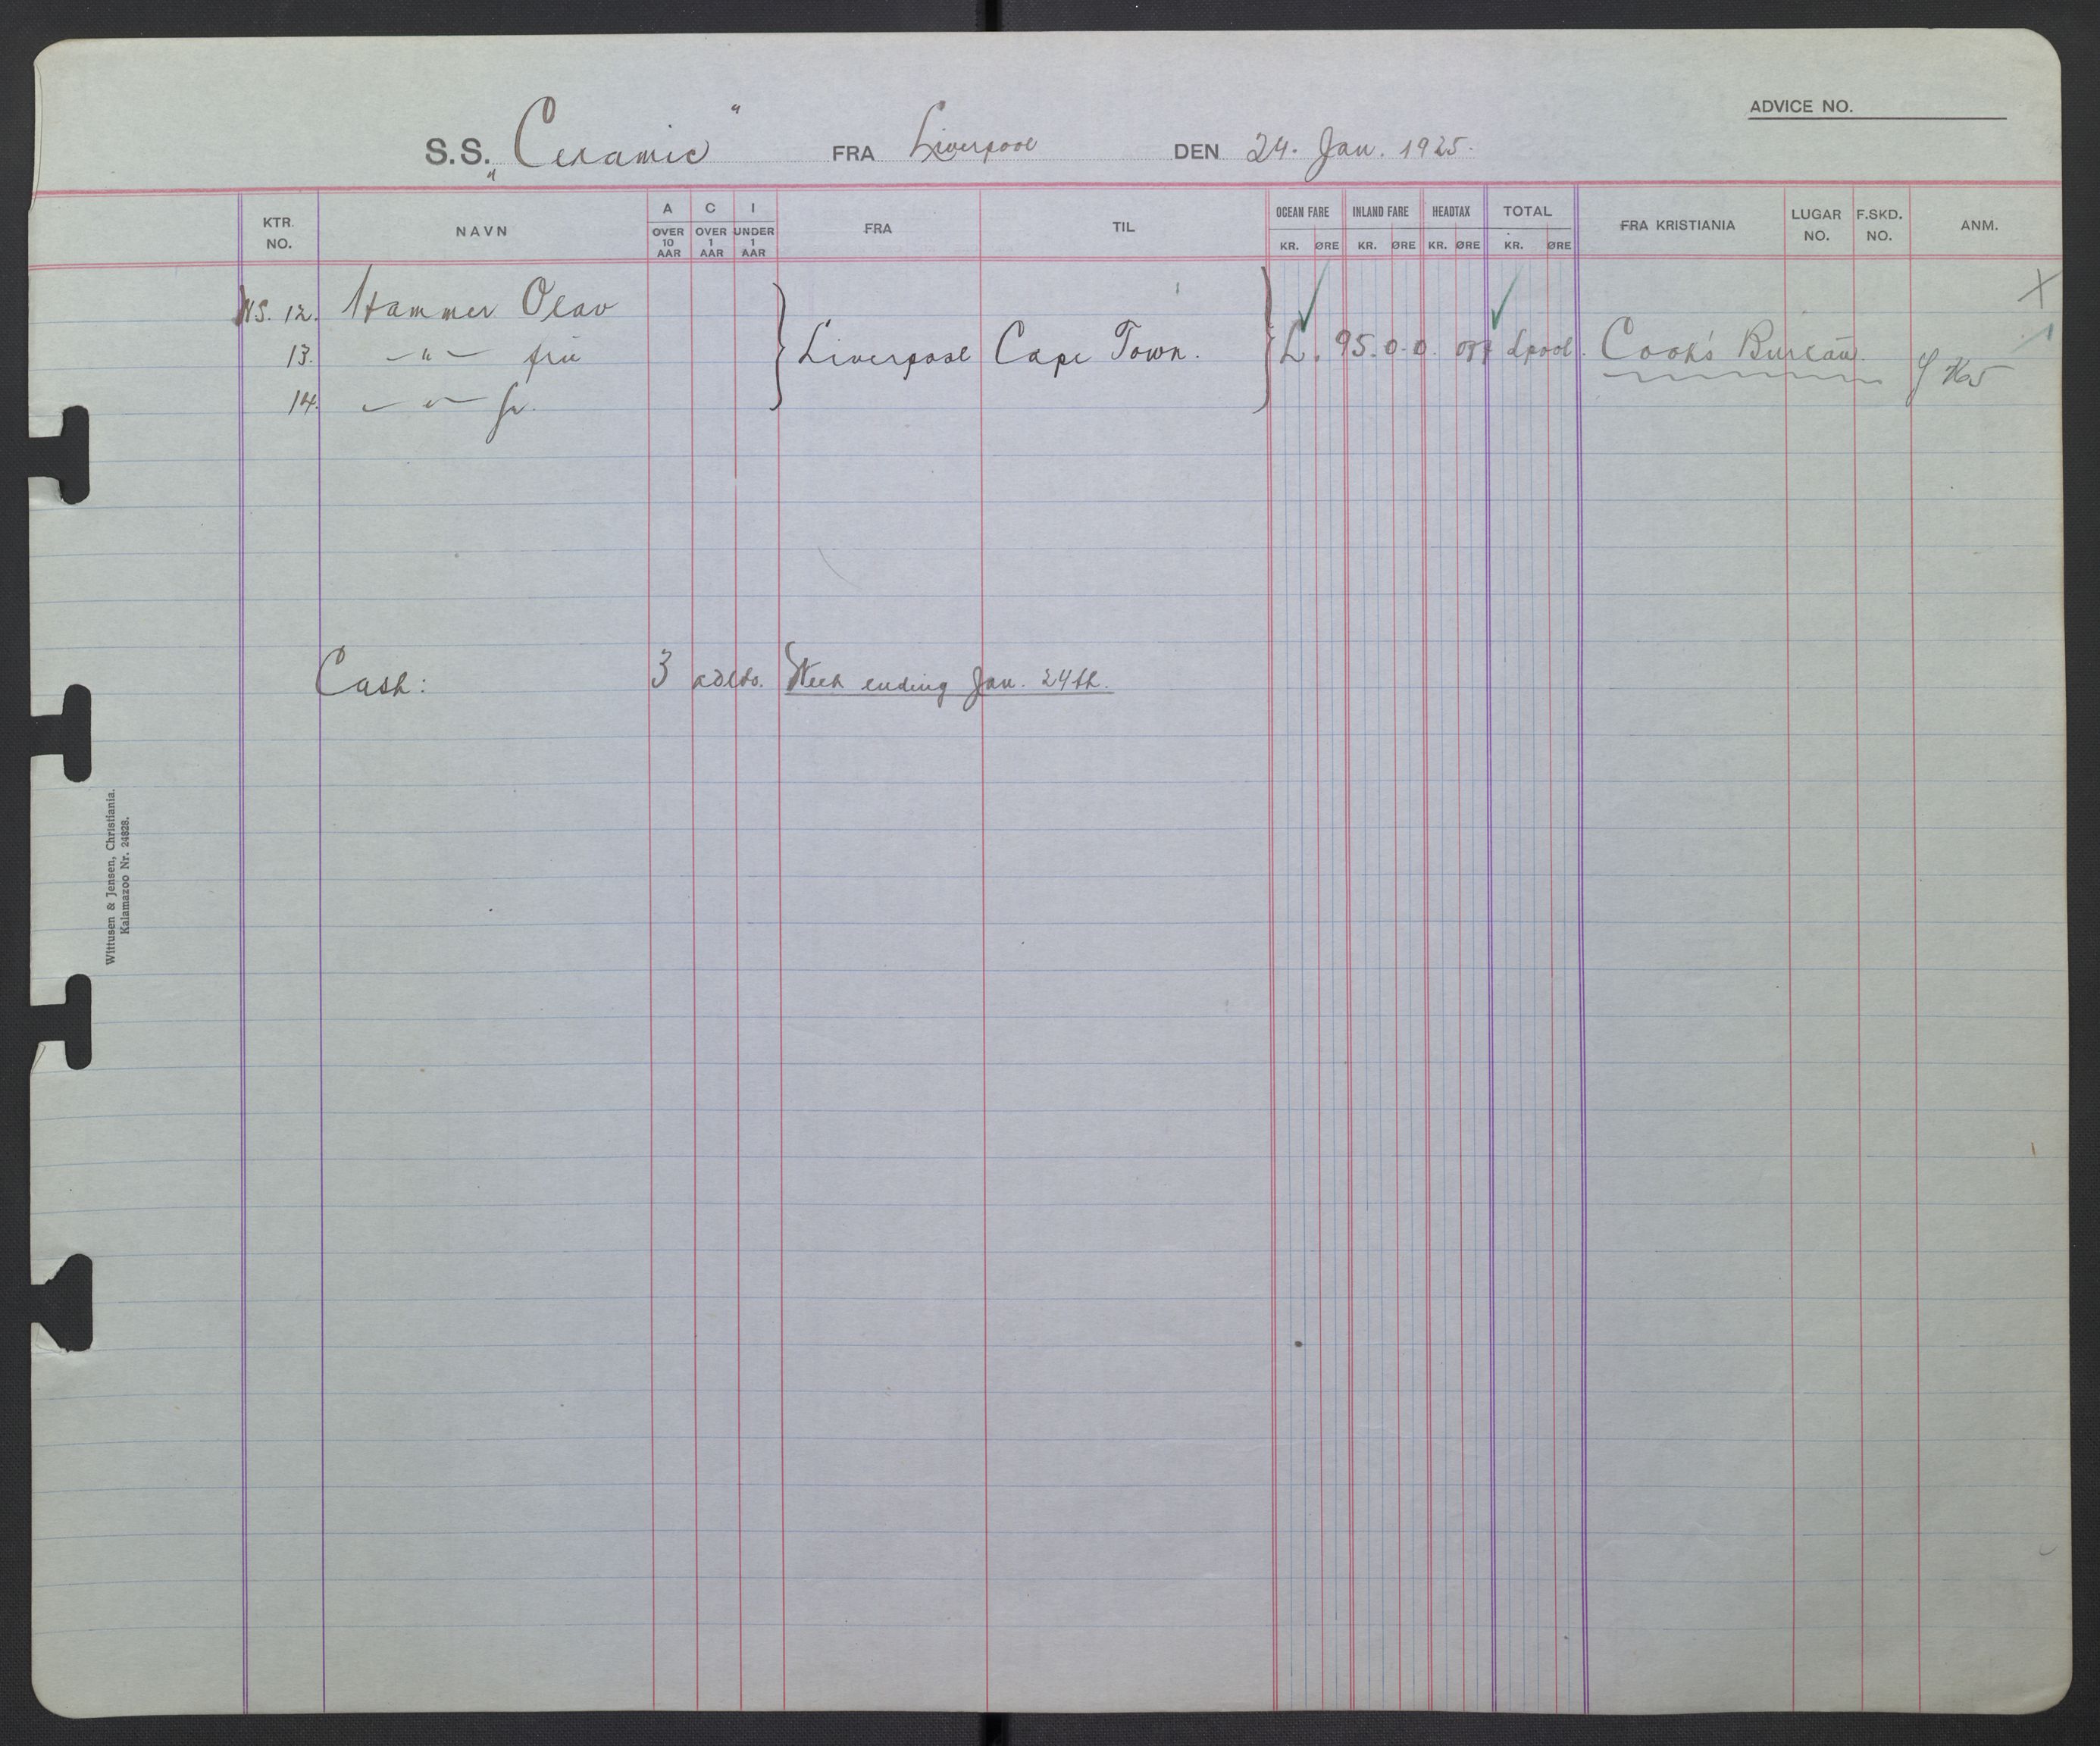 ADVICE NO.
S.S. „Ceramic" FRA Liverpool DEN 24. Jan. 1925.
KTR. NO. NAVN A OVER 10 AAR C OVER 1 AAR I UNDER 1 AAR FRA TIL OCEAN FARE KR. ØRE INLAND FARE KR. ØRE HEADTAX KR. ØRE TOTAL KR. ØRE FRA KRISTIANIA LUGAR NO. F.SKD. NO. ANM.
WS. 12. Hammer Olav
13. —"— frue Liverpool Cape Town. £. 95.0.0. off Lpool. Cook's Bureau
14. —"— fr.
Cash: 3 adlts. Week ending Jan. 24th.
Wittusen & Jensen, Christiania.
Kalamazoo Nr. 24828.